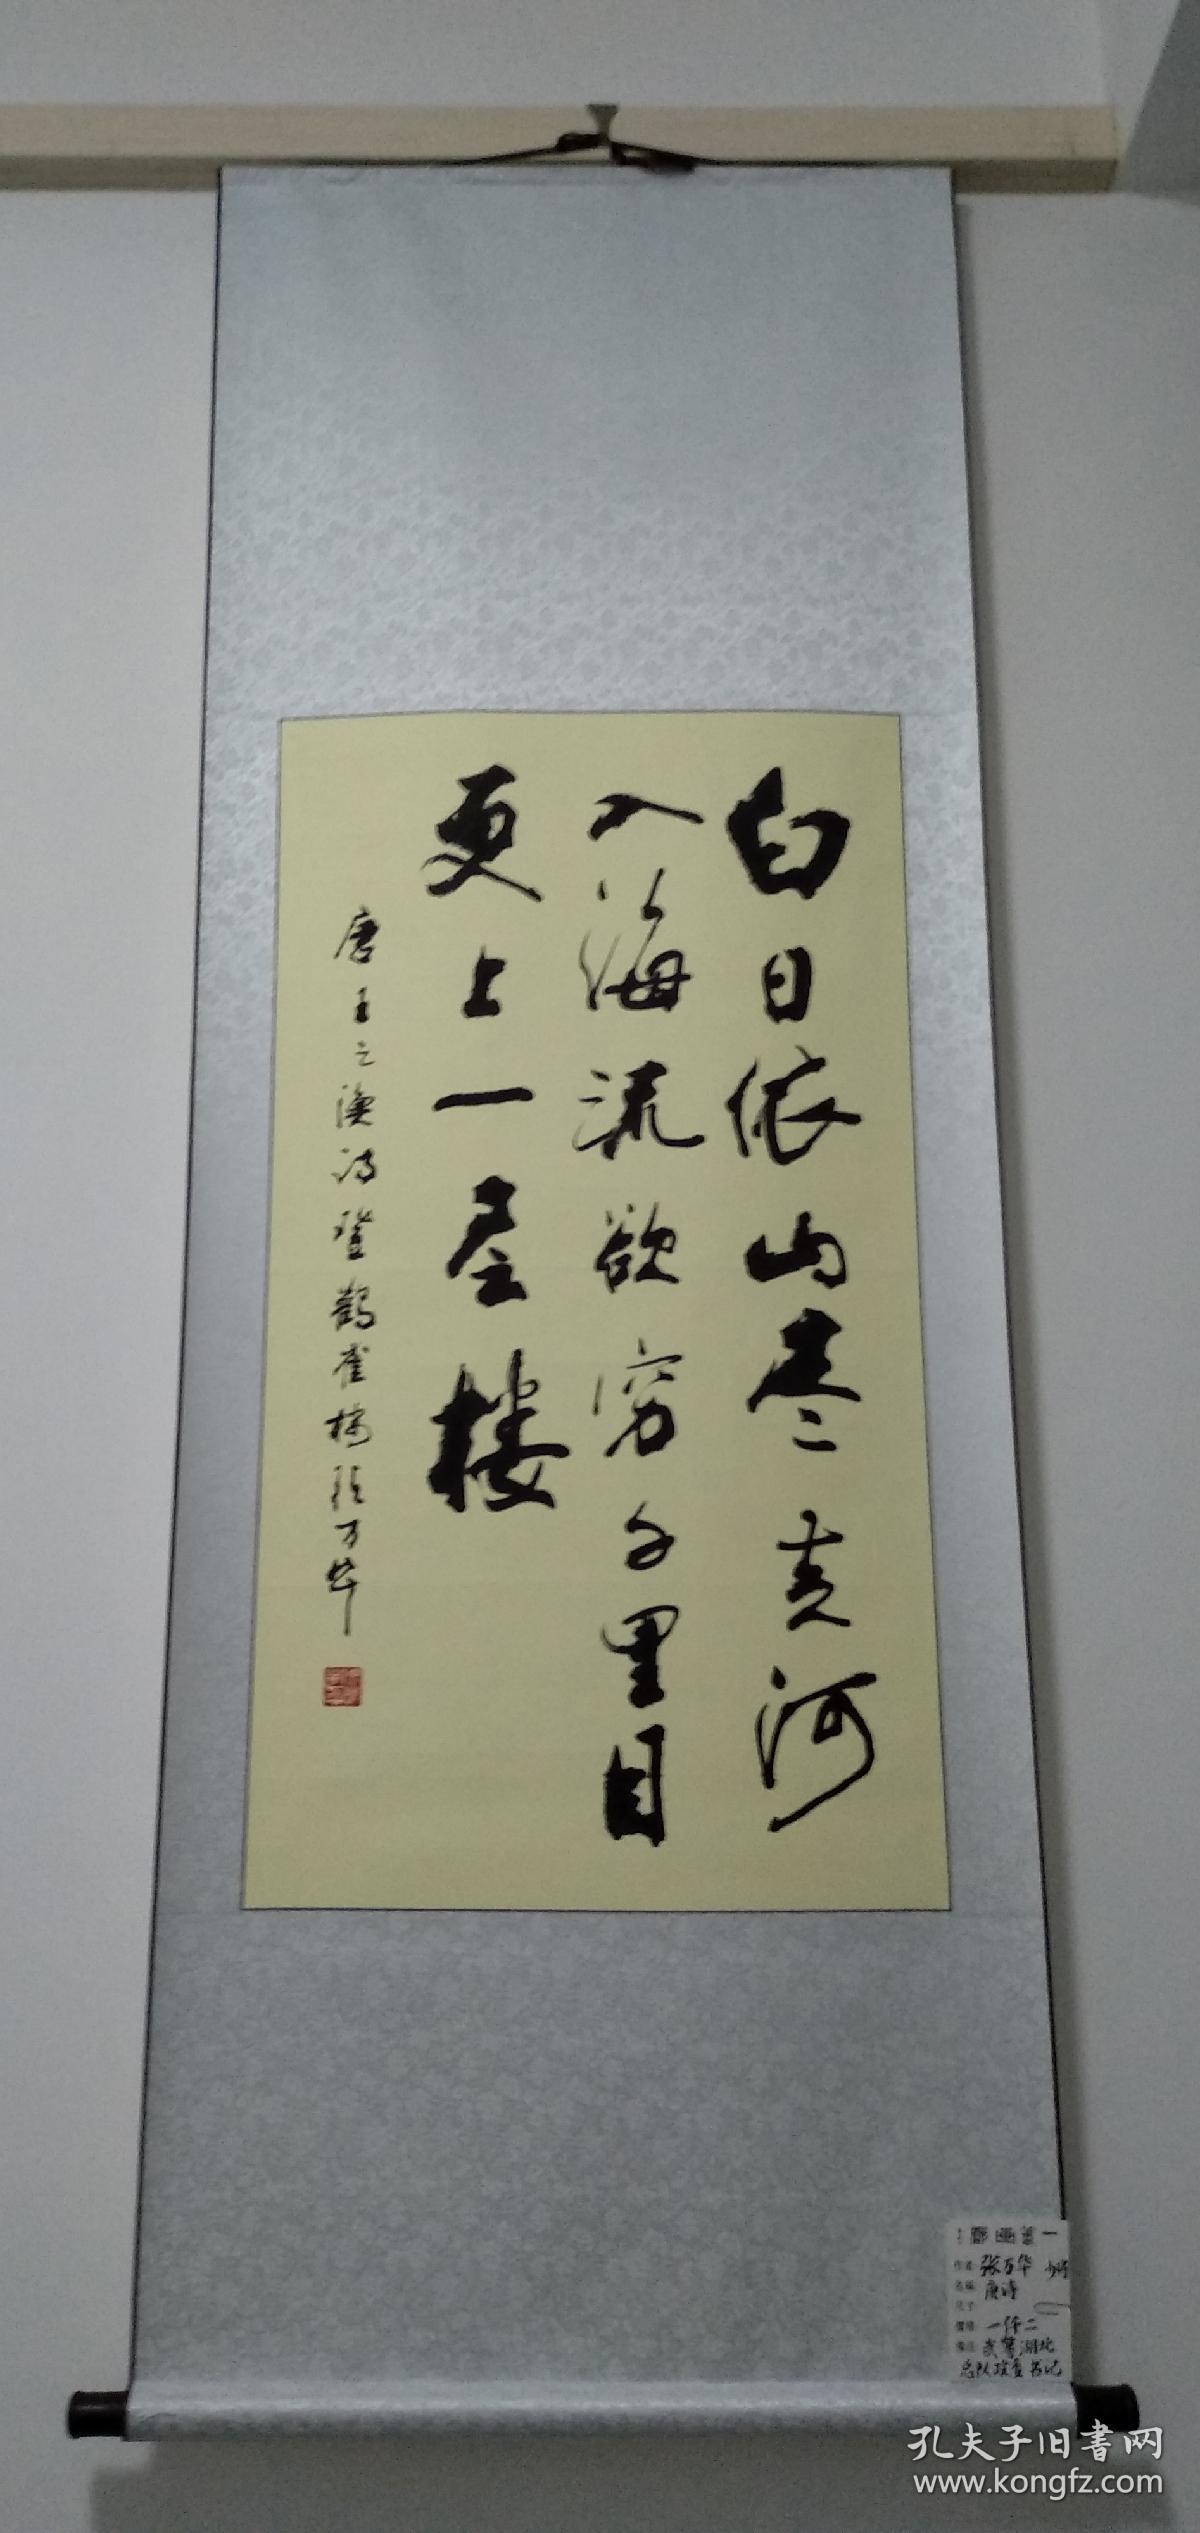 白日依山尽黄河
入海流欲穷千里目
更上一层楼
唐王之涣诗登鹳雀楼张万华
作者 张万华 少将
名称 唐诗
尺寸
价格 一仟二
备注 武警湖北
总队政委书记
孔夫子旧書网
www.kongfz.com